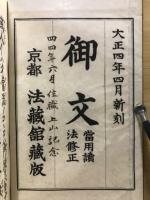 大正四年四月新刻
御文
當用讀
法修正
四四年六月住職上山記念
京都 法藏館藏版